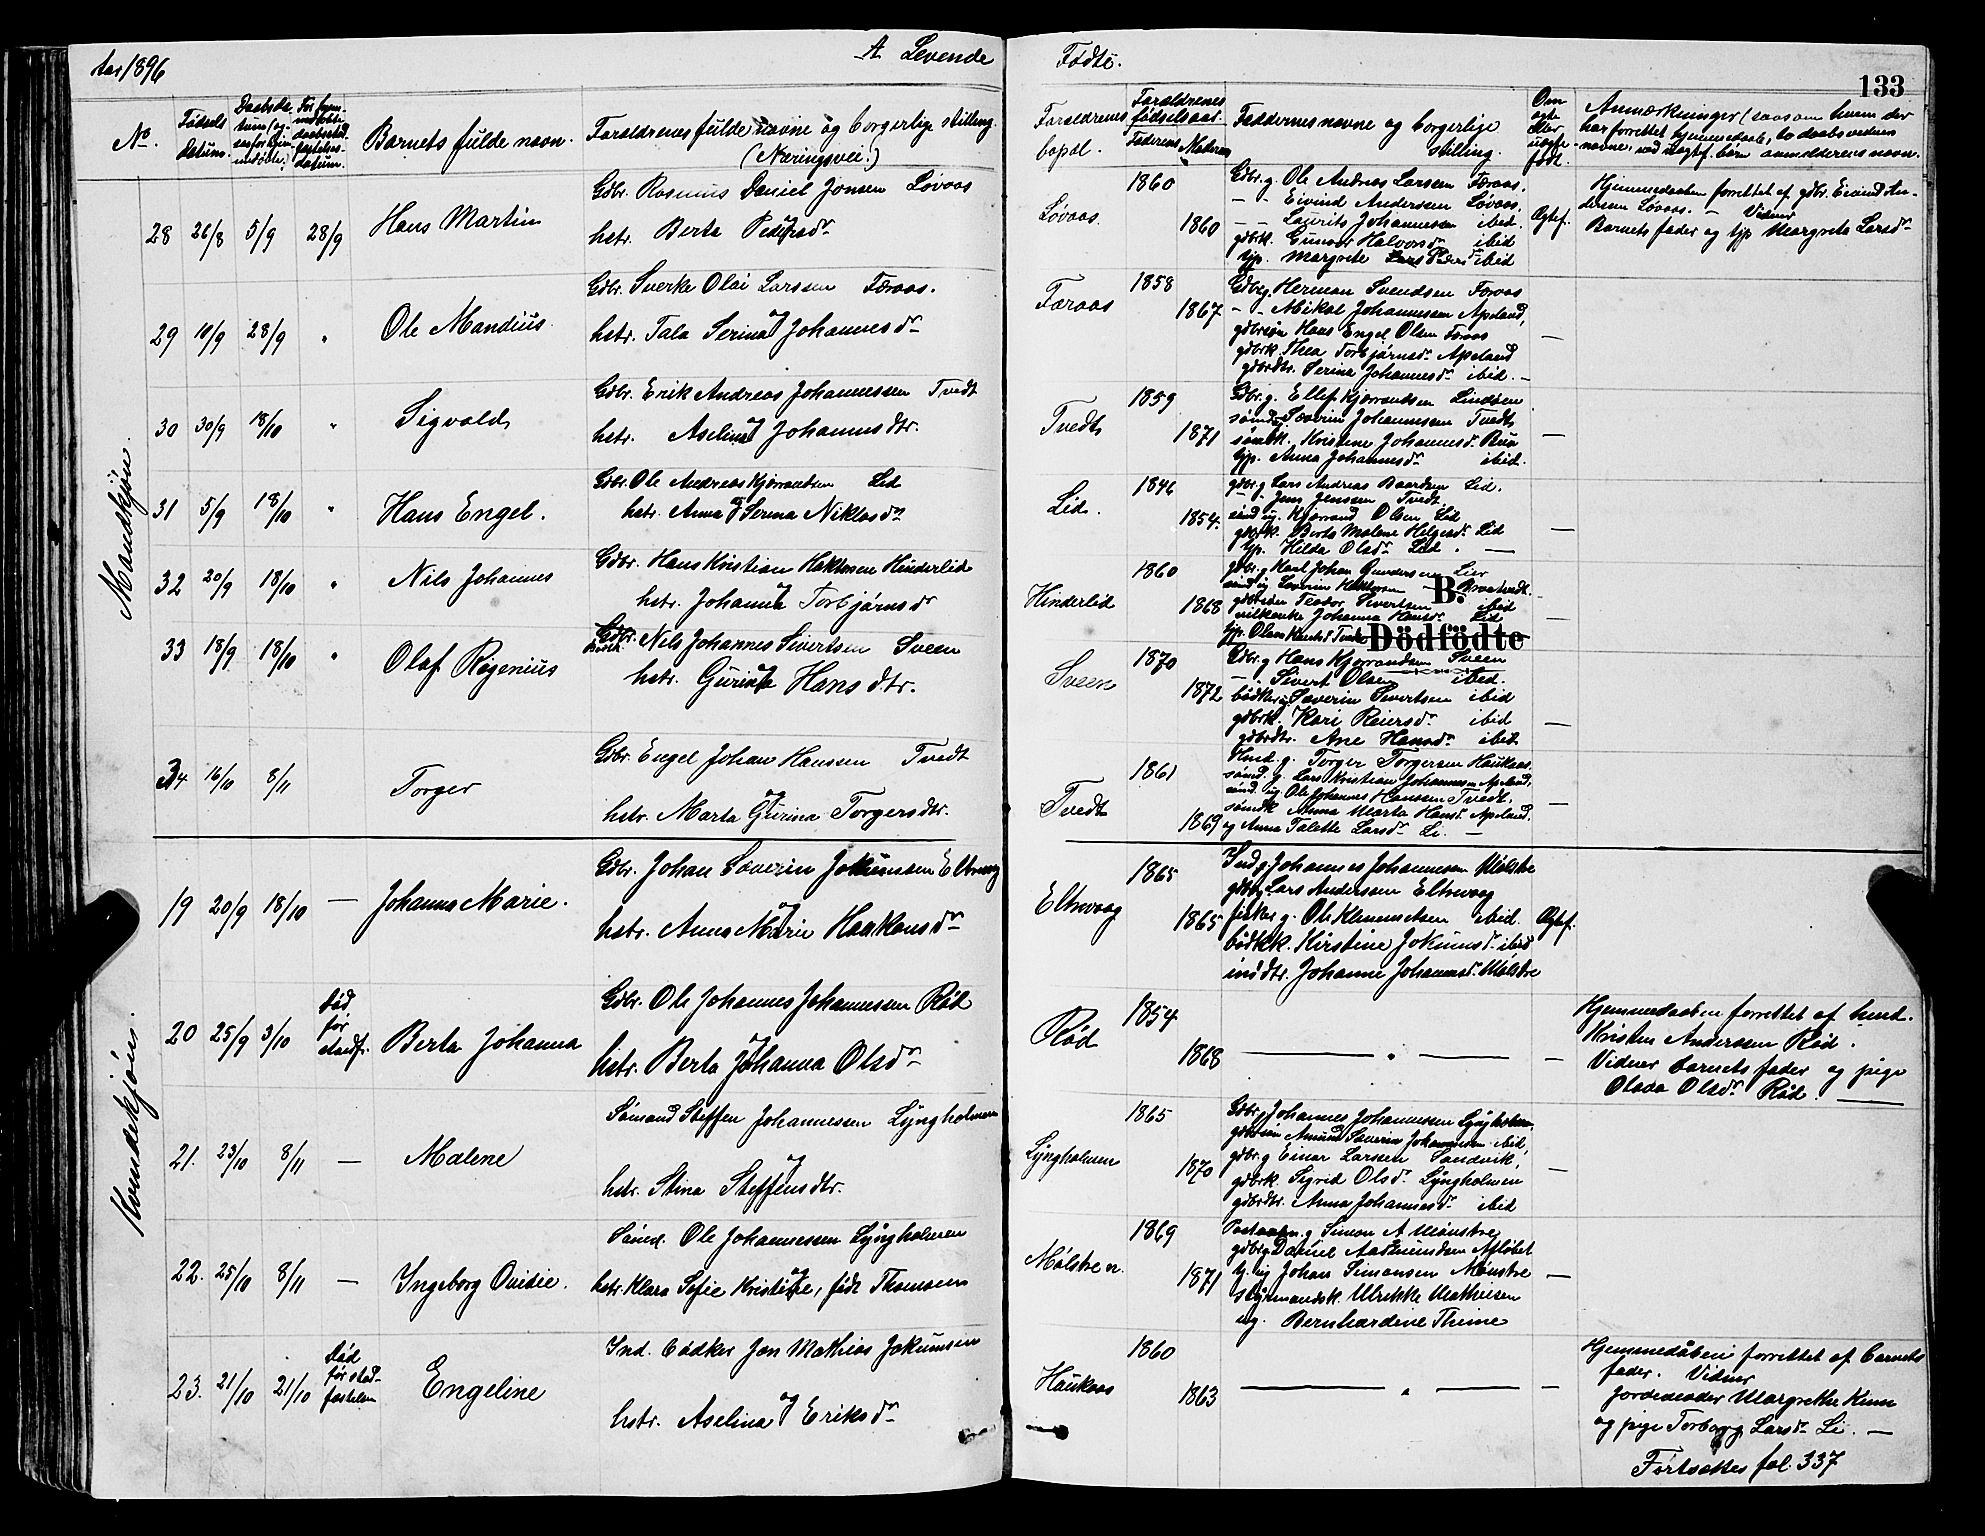 Aar 1896
A. Levende Födte.
133
No. Födsels datum. Daabsdatum Barnets fulde navn. Forældrenes fulde navne og borgerlige stilling
(Næringsvei.)
Forældrenes bopæl. Forældrenes födselsaar. Faderens Moderen
Faddernes navne og borgerlige stilling.
Om ægte eller uægte födt.
Anmærkninger (saasom hvem der
har forrettet hjemmedaab, to daabsvidners
navne, ved uægtef. börn anmelderens navn.
Mandkjön.
28 26/8 5/9 28/9 Hans Martin
Gdbr. Rasmus Daniel Jonsen Lövaas
og
hstr. Berta Pedersdr
Lövaas. 1860 1860
Gdbr. g. Ole Andreas Larsen Færaas.
- - Eivind Andersen Lövaas.
- - Laurits Johannessen ibid.
gdbrk. Gunvor Halvorsdr ibid
tjp. Margrete Pedersdr ibid
Ægtef.
Hjemmedaaben forrettet af gdbr. Eivind An-
dersen Lövaas. - Vidner
Barnets fader og tjp Margreta Larsdr
29 10/9 28/9 " Ole Mandius.
Gdbr. Sverke Olai Larssen Færaas.
og
hstr. Tala Serina Johannesdr
Færaas 1858 1867
Gdbr g. Herman Svendsen Færaas
- - Mikal Johannessen Apeland,
gdbrsön Hans Engel Olsen Færaas
gdbrk. Thea Torbjörnsdr Apeland
gdbrdtr. Serina Johannesdr ibid. -
—
30 30/9 18/10 " Sigvald
Gdbr. Erik Andreas Johannessen Tvedt
og
hstr. Aselina Johannesdtr.
Tvedt 1859 1871
Gdbr. g. Ellef Kjærrandsen Lindöen
sömd. Severin Johannessen Tvedt
sömdk. Kristine Johannesdr
tjp. Anna Johannesdr ibid.
—
31 5/9 18/10 " Hans Engel.
Gdbr. Ole Andreas Kjærrandsen Lid
og
hstr. Anna Serina Niklasdr
Lid. 1846 1854.
gdbr. g Lars Andreas Baardsen Lid.
- - Jens Jenssen Tvedt
sömd ug. Kjærrand Olsen Lid
gdbrk. Berta Malene Helgesdr Lid
tjp. Hilda Olsdr Lid. —
—
32 20/9 18/10 " Nils Johannes
Gdbr. Hans Kristian Haktorsen Hinderlid
og
hstr. Johanna Torbjörnsdr
Hinderlid 1860 1868
gdbr. g Karl Johan Gundersen Lier
sömd ug Severin Haktorsen
gdbrsön Teodor Sivertsen ibid
Johanna Hansdr Lid
—
B.
Dödfödte
33 18/9 18/10 " Olaf Regenius
Gdbr. Nils Johannes Sivertsen Sveen
og
hstr. Gurina Hansdtr.
Sveen 1870 1872
Gdbr. g Hans Kjærrandsen Sveen
- - Sivert Olsen ibid.
bödker g. Severin Sivertsen ibid
gdbrk. Kari Reiersdr ibid
gdbrdtr. Ane Hansdr ibid
—
34 16/10 8/11 Torger
Gdbr. Engel Johan Hanssen Tvedt
og
hstr. Marta Gurina Torgersdtr.
Tvedt 1861 1869
g. Torger Torgersen Haukaas
sömd. g. Lars Kristian Johannessen Apeland,
sömd. ug Ole Johannes Hanssen Tvedt.
sömdk Anna Marta Hansdr Apeland.
og Anna Talette Larsdr Li. —
—
Kvindekjön.
19 20/9 18/10 — Johanna Marie.
Gdbr. Johan Severin Jokumsen Eltrevaag
og
hstr. Anna Marie Haakonsdr
Eltrevaag 1865 1865
Ind g Johannes Johannessen Mölstre
gdbr g Lars Andersen Eltrevaag
fisker g. Ole Klemmetsen ibid.
bödkk. Kirstine Jokumsdr ibid
inddtr. Johanne Johannesdr Mölstre
Ægtef.
20 25/9 3/10 Död för stadf. Berta Johanna
Gdbr. Ole Johannes Johannessen Röd
og
hstr. Berta Johanna Olsdr
Röd 1854 1868
— " — —
Hjemmedaaben forrettet af
Kristen Anderssen Röd.
Vidner barnets fader og pige
Olava Olsdr Röd. —
21. 23/10 8/11 — Malene
Sömand Steffen Johannessen Lyngholmen
og
hstr. Stina Steffensdtr.
Lyngholmen 1865 1870
Gdbr g Johannes Johannessen Lyngholmen
gdbrsön Amund Severin Johannessen ibid,
gdbr. g Einar Larssen Sandvik,
gdbrk Sigrid Olsdr Lyngholmen
gdbrdtr. Anna Johannesdr ibid
—
22. 25/10 8/11 — Ingeborg Ovidie.
Sömd. Ole Johannessen Lyngholmen
og
hstr. Klara Sofie Kristine, födt Thomsen
Mölstren. 1869 1871
g. Simon A Mönstre
gdbr g Daniel Aadmundsen Aflöbet
tj. ug Johan Simonsen Mönstre
styrmandsk. Ulrikke Mathiesen
ug. Bernhardine Thime
—
23. 21/10 21/10 Död för stadfæstelsen Engeline
Ind. bödker Jon Mathias Jokumsen
og
hstr. Aselina Eriksdr
Haukaas 1860 1863
— " — —
Hjemmedåben forrettet af barnets
fader. Vidner
Jordemoder Margrethe
og pige Torborg Larsdr Li. —
Fortsættes fol. 337